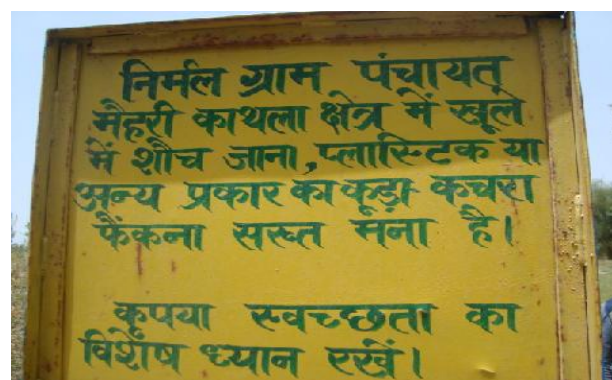 निर्मल ग्राम पंचायत
मैहरी काथला क्षेत्र में खुले
में शौच जाना, प्लास्टिक या
अन्य प्रकार का कूड़ा कचरा
फैंकना सख्त मना है।
कृपया स्वच्छता का
विशेष ध्यान रखें।